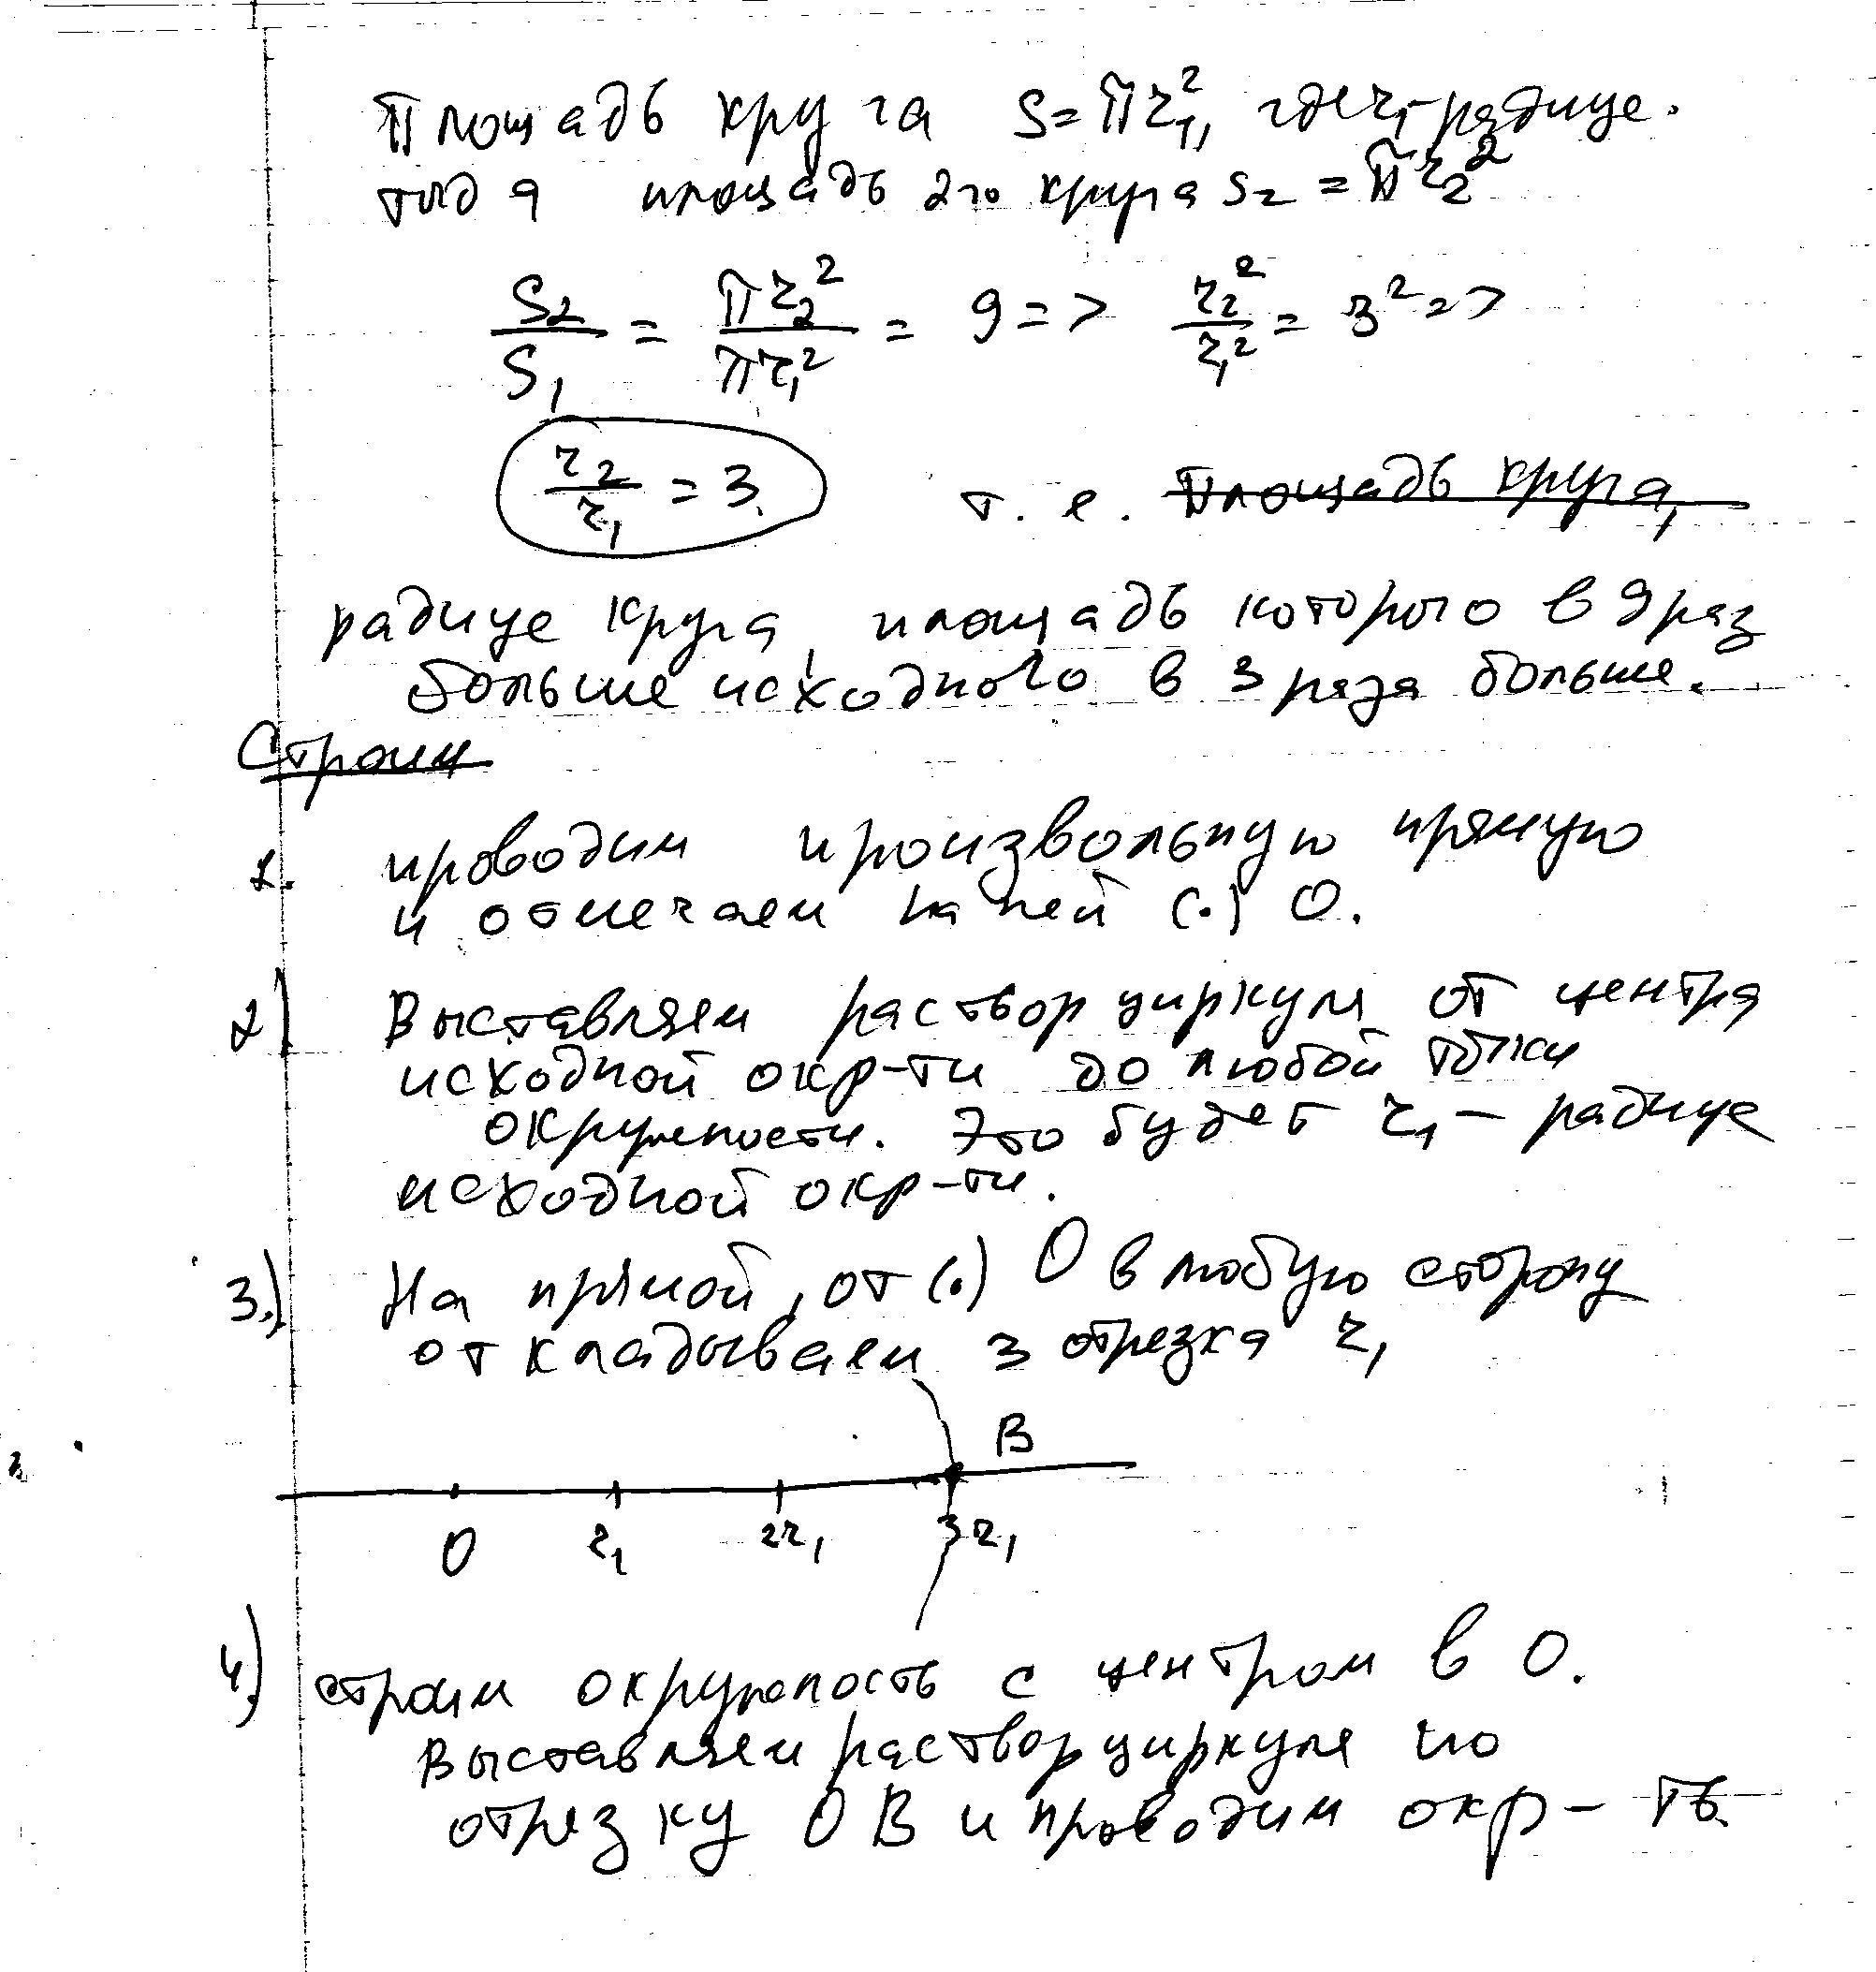 Площадь круга S = πr₁², где r₁ - радиус.
тогда площадь 2го круга S₂ = πr₂²
S₂/S₁ = πr₂²/πr₁² = 9 => r₂²/r₁² = 3² =>
r₂/r₁ = 3. т. е. площадь круга,
радиус круга, площадь которого в 9 раз
больше исходного в 3 раза больше.
Строим
1. проводим произвольную прямую
и отмечаем на ней (.) О.
2) Выставляем раствор циркуля от центра
исходной окр-ти до любой точки
окружности. Это будет r₁ – радиус
исходной окр-ти.
3.) На прямой, от (.) О в любую сторону
откладываем 3 отрезка r₁
B
O r₁ 2r₁ 3r₁
4.) строим окружность с центром в О.
Выставляем раствор циркуля по
отрезку ОВ и проводим окр-ть